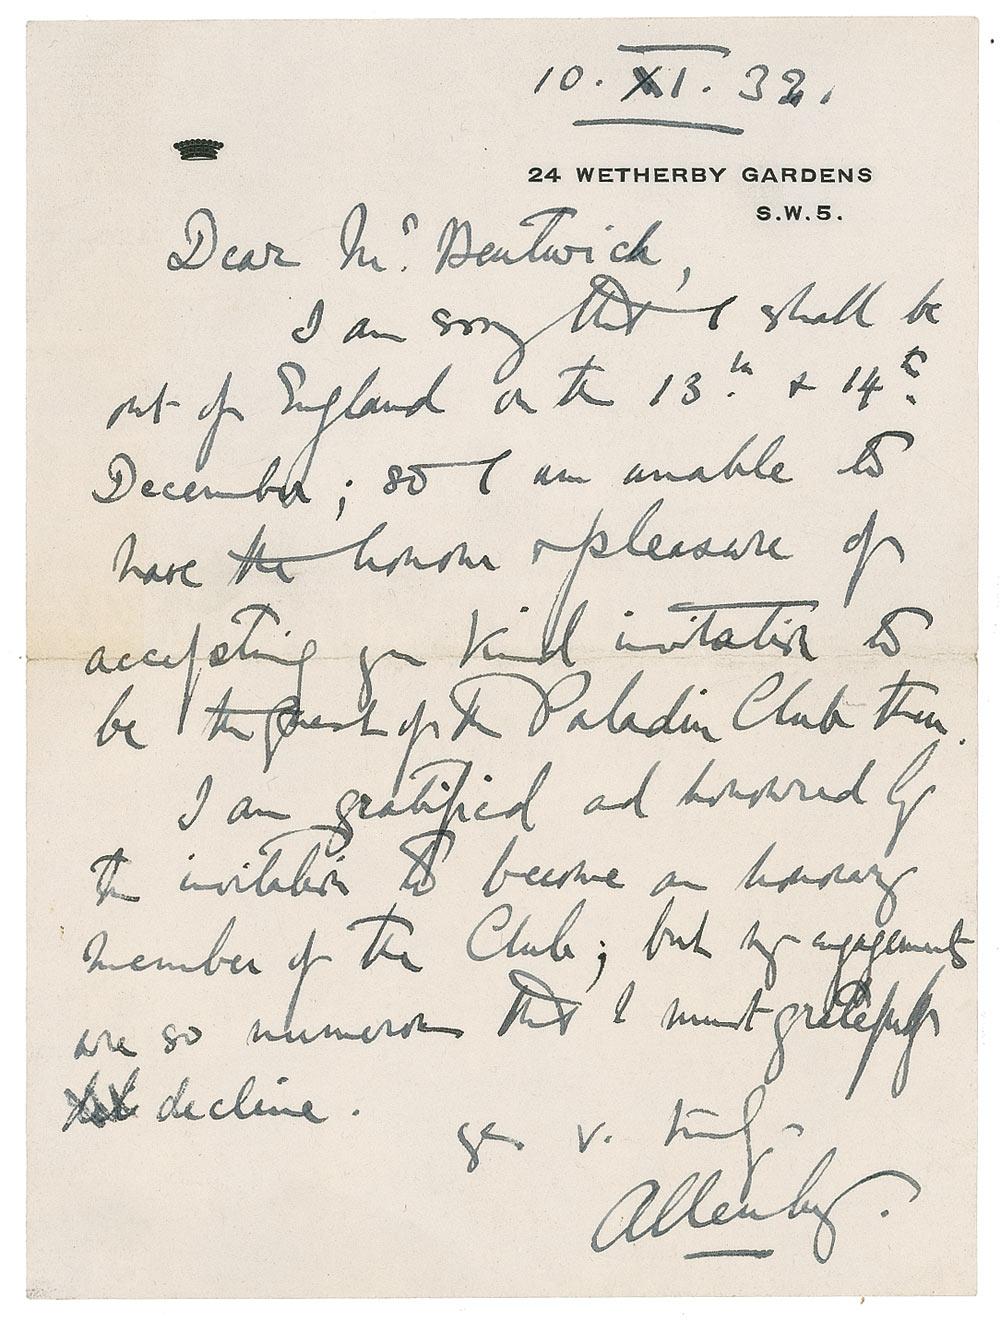 10. XI. 32.
24 WETHERBY GARDENS
S.W.5.
Dear Mr. Bentwich,
I am sorry that I shall be
out of England on the 13th. & 14th.
December; so I am unable to
have the honour & pleasure of
accepting your kind invitation to
be the guest of the Paladin Club then.
I am gratified and honoured by
the invitation to become an honorary
member of the Club; but my engagements
are so numerous that I must gratefully
decline.
yrs. v. truly
Allenby.